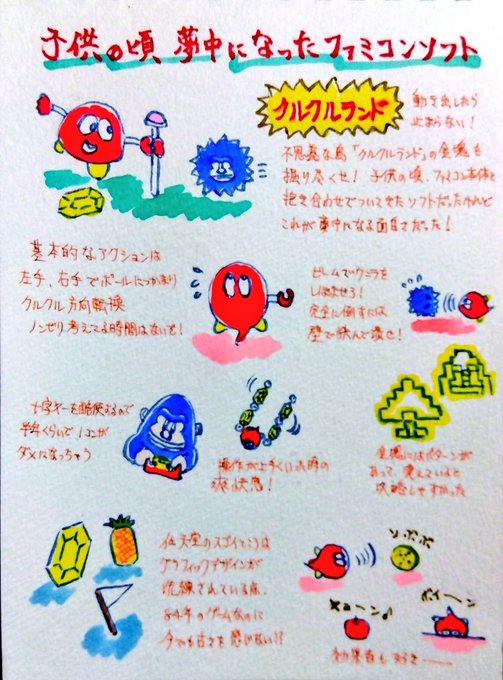 子供の頃 夢中になったファミコンソフト
クルクルランド
動き出したら
止まらない!
不思議な島「クルクルランド」の金塊を
掘り尽くせ! 子供の頃、ファミコン本体と
抱き合わせでついてきたソフトだったけれど
これが夢中になる面白さだった!
基本的なアクションは
左手、右手でポールにつかまり
クルクル方向転換
ノンビリ考えてる時間はないぞ!
ビームでウニラを
しびれさせろ!
完全に倒すには
壁で挟んで潰せ!
十字キーを酷使するので
半年くらいで1コンが
ダメになっちゃう
操作が上手くいった時の
爽快感!
金塊にはパターンが
あって、覚えていると
攻略しやすかった
任天堂のスゴイところは
グラフィックデザインが
洗練されている点。
84年のゲームなのに
今でも古さを感じない!!
ボイ〜ン
効果音も好き